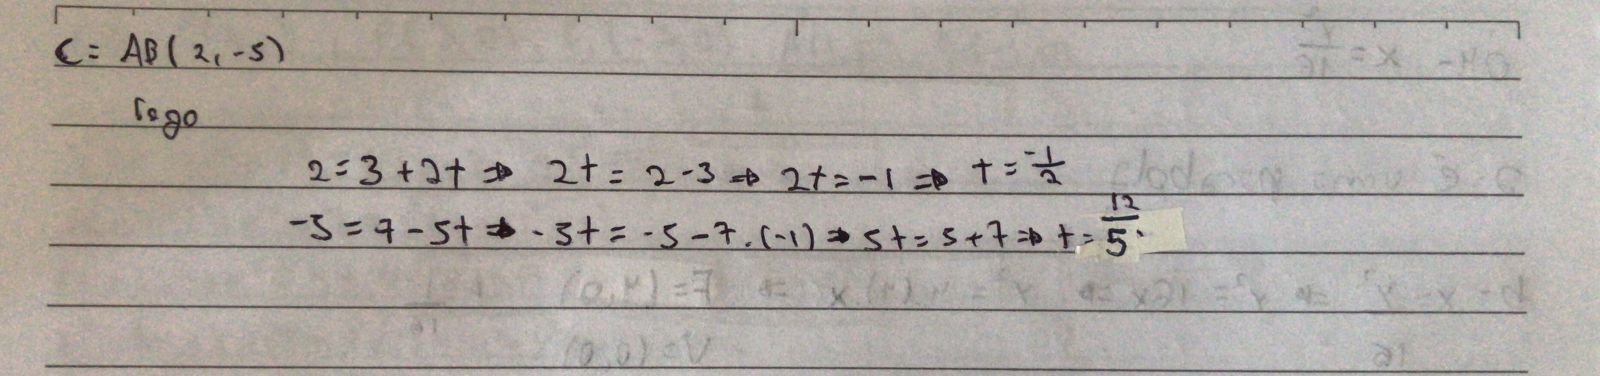 C = AB(2, -5)
logo
2 = 3 + 2t ⇒ 2t = 2 - 3 ⇒ 2t = -1 ⇒ t = -1/2
-5 = 7 - 5t ⇒ -5t = -5 - 7 . (-1) ⇒ 5t = 5 + 7 ⇒ t = 12/5.